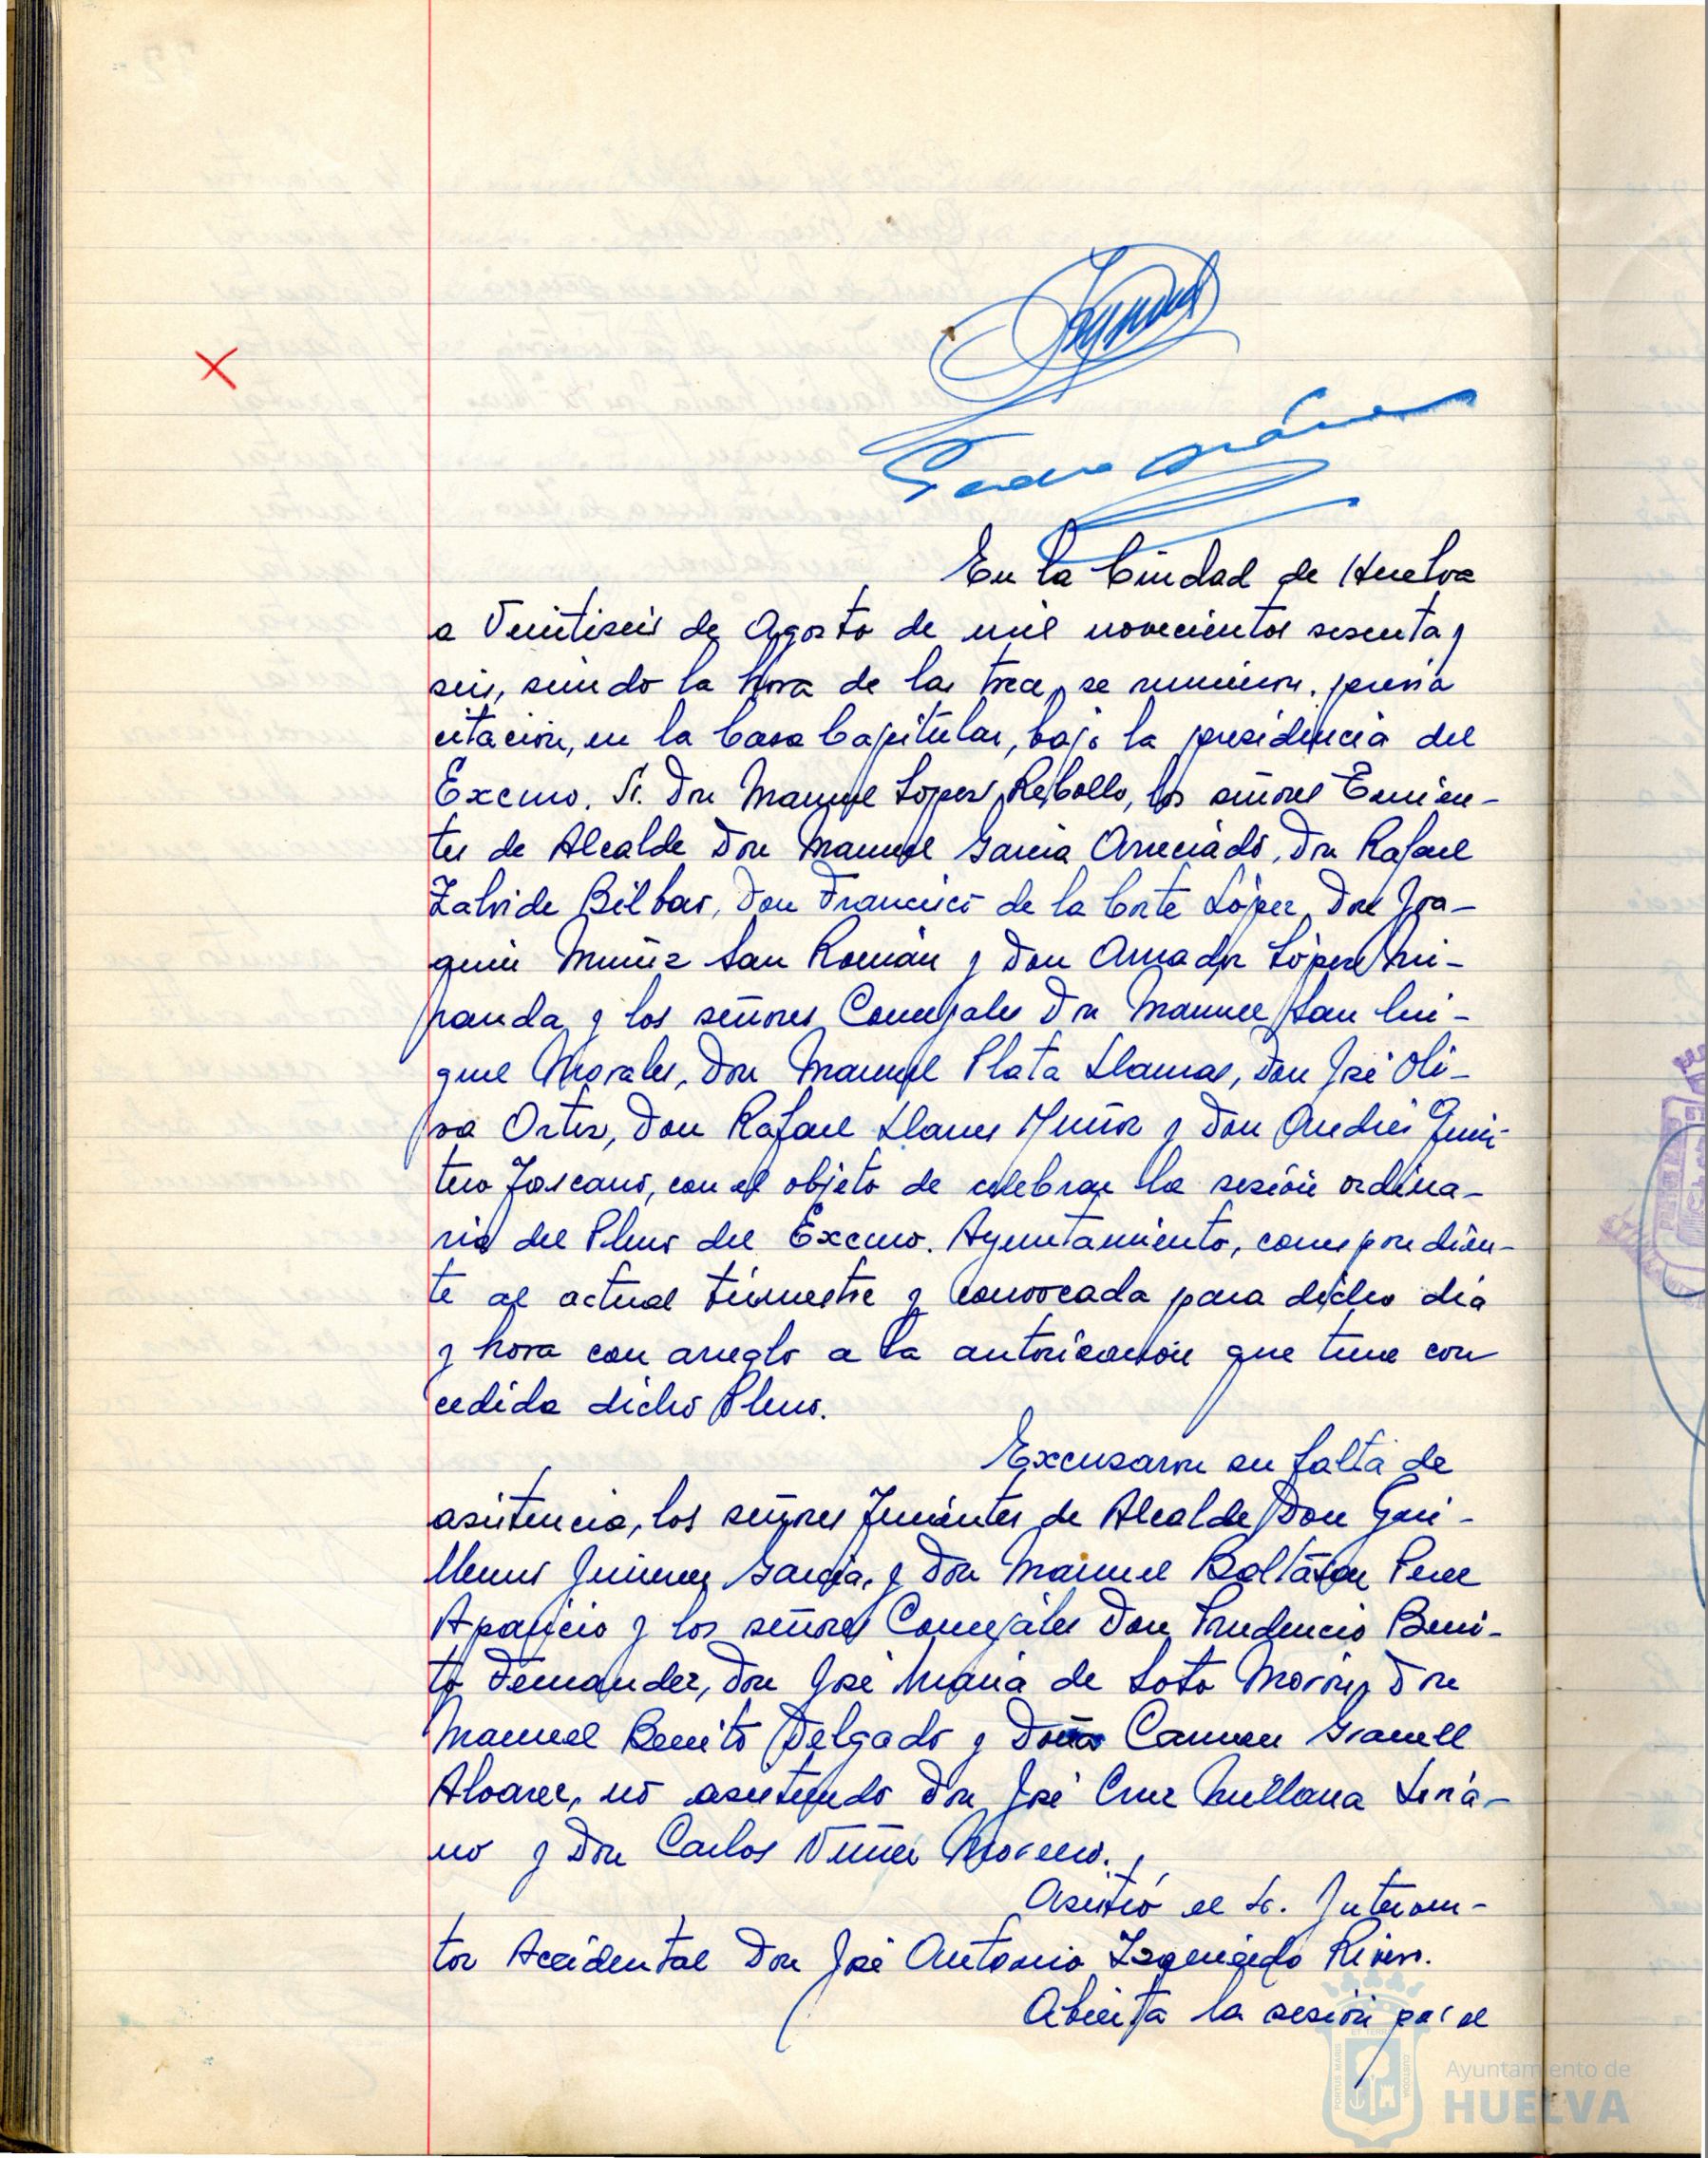 En la Ciudad de Huelva
a Veintiseis de Agosto de mil novecientos sesenta y
seis, siendo la hora de las trece, se reunieron, previa
citación, en la Casa Capitular, bajo la presidencia del
Excmo. Sr. Don Manuel Lopez Rebollo, los señores Tenien-
tes de Alcalde Don Manuel Garcia Arreciado, Don Rafael
Zalvide Bilbao, Don Francisco de la Corte López, Don Joa-
quin Muñiz San Román y Don Amador López Mi-
randa y los señores Concejales Don Manuel San Mi-
guel Morales, Don Manuel Plata Llamas, Don José Oli-
va Ortiz, Don Rafael Llanes Muñoz y Don Andrés Quin-
tero Toscano, con el objeto de celebrar la sesión ordina-
ria del Pleno del Excmo. Ayuntamiento, correspondien-
te al actual trimestre y convocada para dicho dia
y hora con arreglo a la autorización que tiene con
cedida dicho Pleno.
Excusaron su falta de
asistencia, los señores Tenientes de Alcalde Don Gui-
llermo Jimenez Garcia, y Don Manuel Baltasar Perez
Aparicio y los señores Concejales Don Prudencio Beni-
to Fernandez, Don José Maria de Soto Morón, Don
Manuel Benito Delgado y Doña Carmen Granell
Alvarez, no asistiendo Don José Cruz Millana
y Don Carlos Moreno.
Asistió el Sr. Interven-
tor Accidental Don José Antonio Izquierdo Rivero.
Abierta la sesión por el
Ayuntamiento de
HUELVA